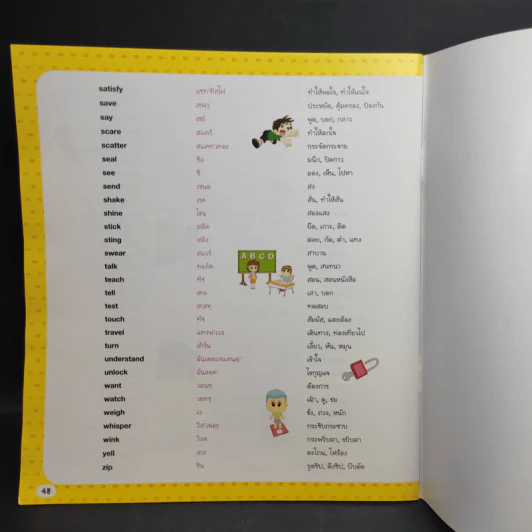 satisfy แซท'ทิสไฟ ทำให้พอใจ, ทำให้แน่ใจ
save เซฟว ประหยัด, คุ้มครอง, ป้องกัน
say เซย์ พูด, บอก, กล่าว
scare สแคร์ ทำให้ตกใจ
scatter สแคท'เทอะ กระจัดกระจาย
seal ซีล ผนึก, ปิดกาว
see ซี มอง, เห็น, ไปหา
send เซนด ส่ง
shake เชค สั่น, ทำให้สั่น
shine ไชน ส่องแสง
stick สติค ยึด, เกาะ, ติด
sting สติง ต่อย, กัด, ตำ, แทง
swear สแวร์ สาบาน
talk ทอล์ค พูด, สนทนา
teach ทีช สอน, สอนหนังสือ
tell เทล เล่า, บอก
test เทสท ทดสอบ
touch ทัช สัมผัส, แตะต้อง
travel แทรฟ'เวล เดินทาง, ท่องเที่ยวไป
turn เทิร์น เลี้ยว, หัน, หมุน
understand อันเดอะสแตนด' เข้าใจ
unlock อันลอค' ไขกุญแจ
want วอนท ต้องการ
watch วอทช เฝ้า, ดู, ชม
weigh เว ชั่ง, ถ่วง, หนัก
whisper วิส'เพอะ กระซิบกระซาบ
wink วิงค กระพริบตา, ขยิบตา
yell เยล ตะโกน, โห่ร้อง
zip ซิพ รูดซิป, ดึงซิป, บีบอัด
A B C D
48